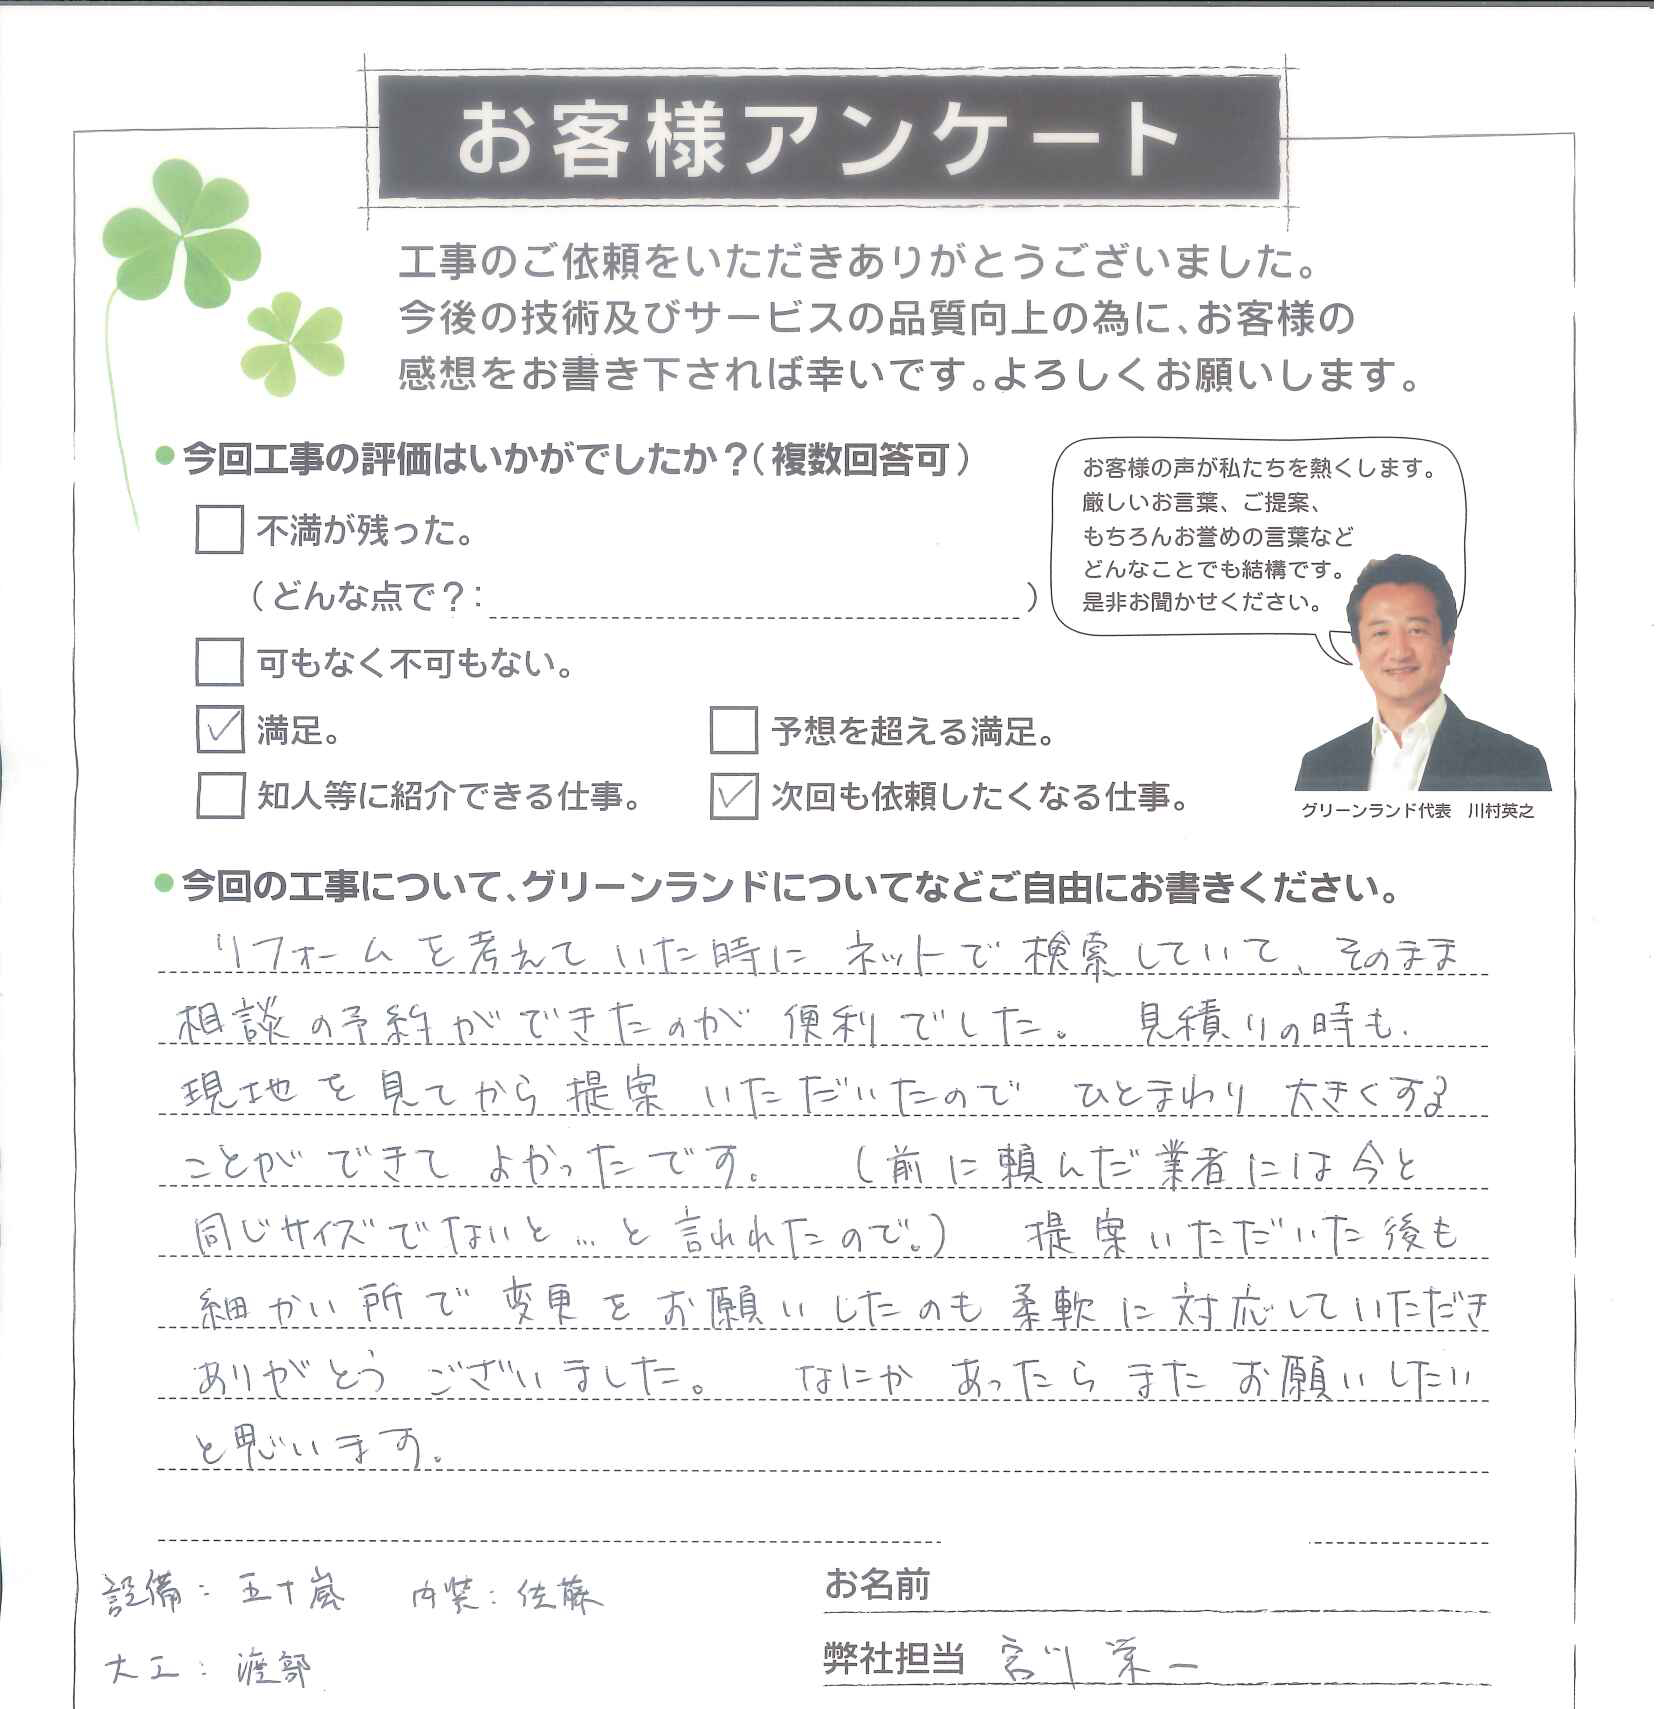 お客様アンケート
工事のご依頼をいただきありがとうございました。
今後の技術及びサービスの品質向上の為に、お客様の
感想をお書き下されば幸いです。よろしくお願いします。
今回工事の評価はいかがでしたか？（複数回答可）
不満が残った。
（どんな点で？： ）
可もなく不可もない。
満足。 予想を超える満足。
知人等に紹介できる仕事。 次回も依頼したくなる仕事。
お客様の声が私たちを熱くします。
厳しいお言葉、ご提案、
もちろんお誉めの言葉など
どんなことでも結構です。
是非お聞かせください。
グリーンランド代表 川村英之
今回の工事について、グリーンランドについてなどご自由にお書きください。
リフォームを考えていた時にネットで検索していて、そのまま
相談の予約ができたのが便利でした。 見積りの時も、
現地を見てから提案いただいたので ひとまわり大きくする
ことができてよかったです。 （前に頼んだ業者には今と
同じサイズでないと…と言われたので。） 提案いただいた後も
細かい所で変更をお願いしたのも柔軟に対応していただき
ありがとうございました。 なにかあったらまたお願いしたい
と思います。
設備：五十嵐 内装：佐藤
大工：渡部
お名前
弊社担当 宮川 栄一